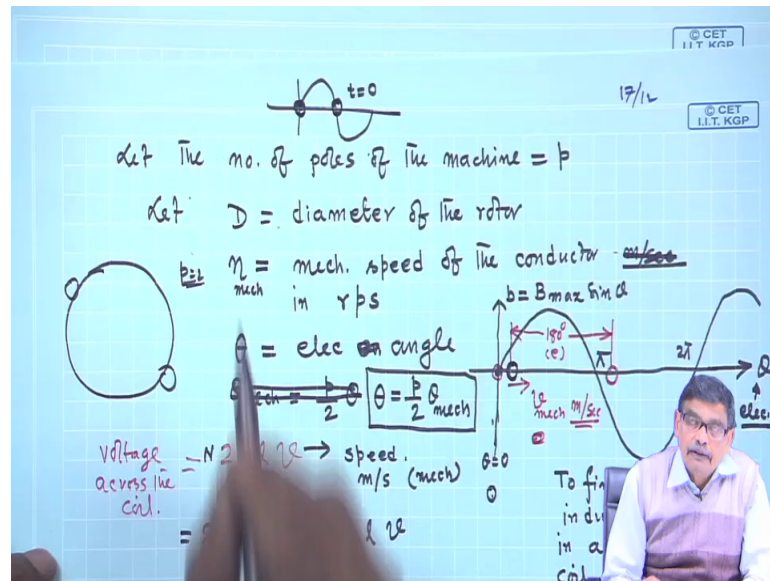 © CET
I.I.T. KGP
17/12
t=0
© CET
I.I.T. KGP
Let The no. of poles of The machine = p
Let D = diameter of the rotor
p=2
n mech = mech. speed of the conductor m/sec
in rps
b = Bmax Sin θ
θ = elec angle
180°
(e)
π
2π
θ
elec
θ mech = p/2 θ
θ = p/2 θ mech
v mech m/sec
θ=0
voltage
across the
coil.
= N 2 l v → speed.
m/s (mech)
= l v
To fin
in du
in a
coil